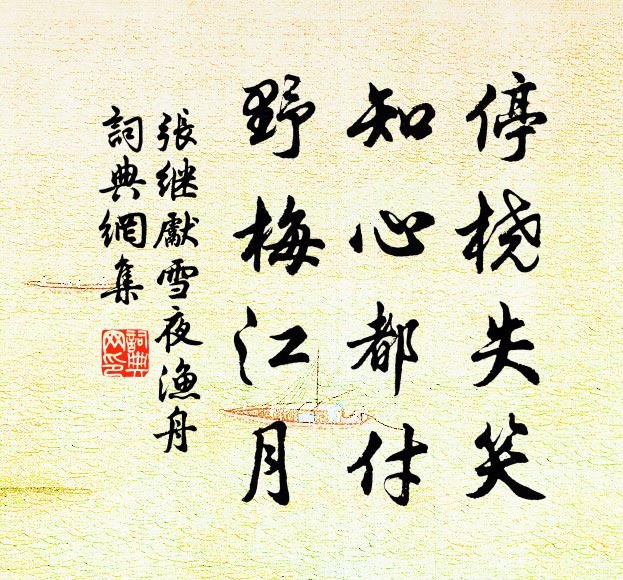 停桡失笑
知心都付
野梅江月
張继獻雪夜漁舟
詞典網集
詞典网印